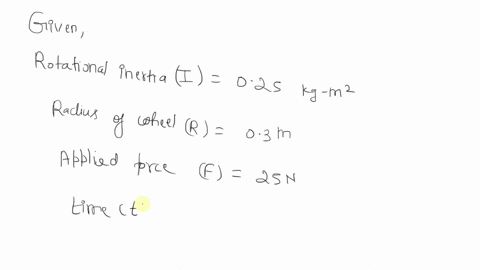 Given,
Rotational inertia (I) = 0.25 kg-m²
Radius of wheel (R) = 0.3 m
Applied force (F) = 25 N
time (t